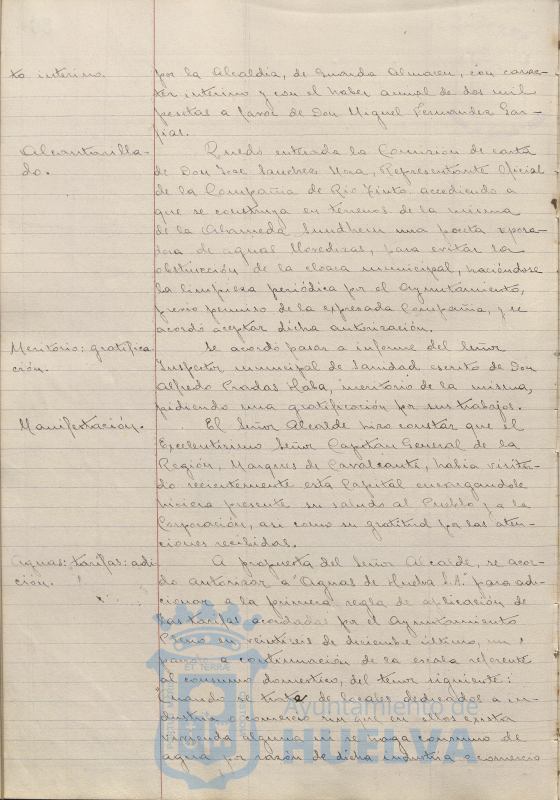 to interino.
por la Alcaldia, de Guarda Almacen, con carac-
ter interino y con el haber anual de dos mil
pesetas a favor de Don Miguel Fernandez Gar-
Alcantarilla-
do.
Quedó enterada la Comision de carta
de Don Jose Sanchez Mora, Representante Oficial
de la Compañia de Rio Tinto accediendo a
que se construya en terrenos de la misma
de la Alameda Sundheim una poceta
de aguas llovedizas, para evitar la
obstrucción de la cloaca municipal, haciéndose
la limpieza periódica por el Ayuntamiento,
previo permiso de la expresada Compañia, y se
acordó aceptar dicha autorización.
Meritorio: gratifica
ción.
Se acordó pasar a informe del Señor
Inspector municipal de Sanidad escrito de Don
Alfredo Pradas Haba, meritorio de la misma,
pidiendo una gratificación por sus trabajos.
Manifestación.
El Señor Alcalde hizo constar que el
Excelentisimo Señor Capitán General de la
Región, Marques de Cavalcanti, habia visita-
do recientemente esta Capital encargandole
hiciera presente su saludo al Pueblo y a la
Corporación, asi como su gratitud por las aten-
ciones recibidas.
Aguas: tarifas: adi
ción.
A propuesta del Señor Alcalde, se acor-
dó autorizar a "Aguas de Huelva S.A." para adi-
cionar a la primera regla de aplicación de
las tarifas acordadas por el Ayuntamiento
Pleno en veintiseis de diciembre último, un
parrafo a continuación de la escala referente
al consumo domestico, del tenor siguiente:
"Cuando se trate de locales dedicados a in-
dustria o comercio sin que en ellos exista
vivienda alguna ni se haga consumo de
agua por razón de dicha industria o comercio
Ayuntamiento de
HUELVA